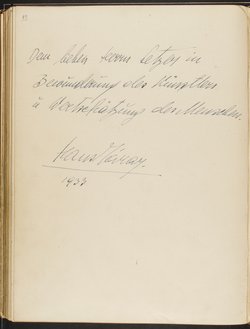 Dem lieben Herrn Letzoj in
Bewunderung des Künstlers
u Wertschätzung des Menschen.
Hans
1933